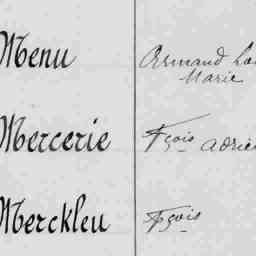 Menu Armand
Marie
Mercerie Fçois
Merckleu Fçois